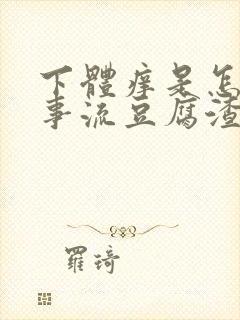 下體痒是怎
事流豆腐渣
羅琦